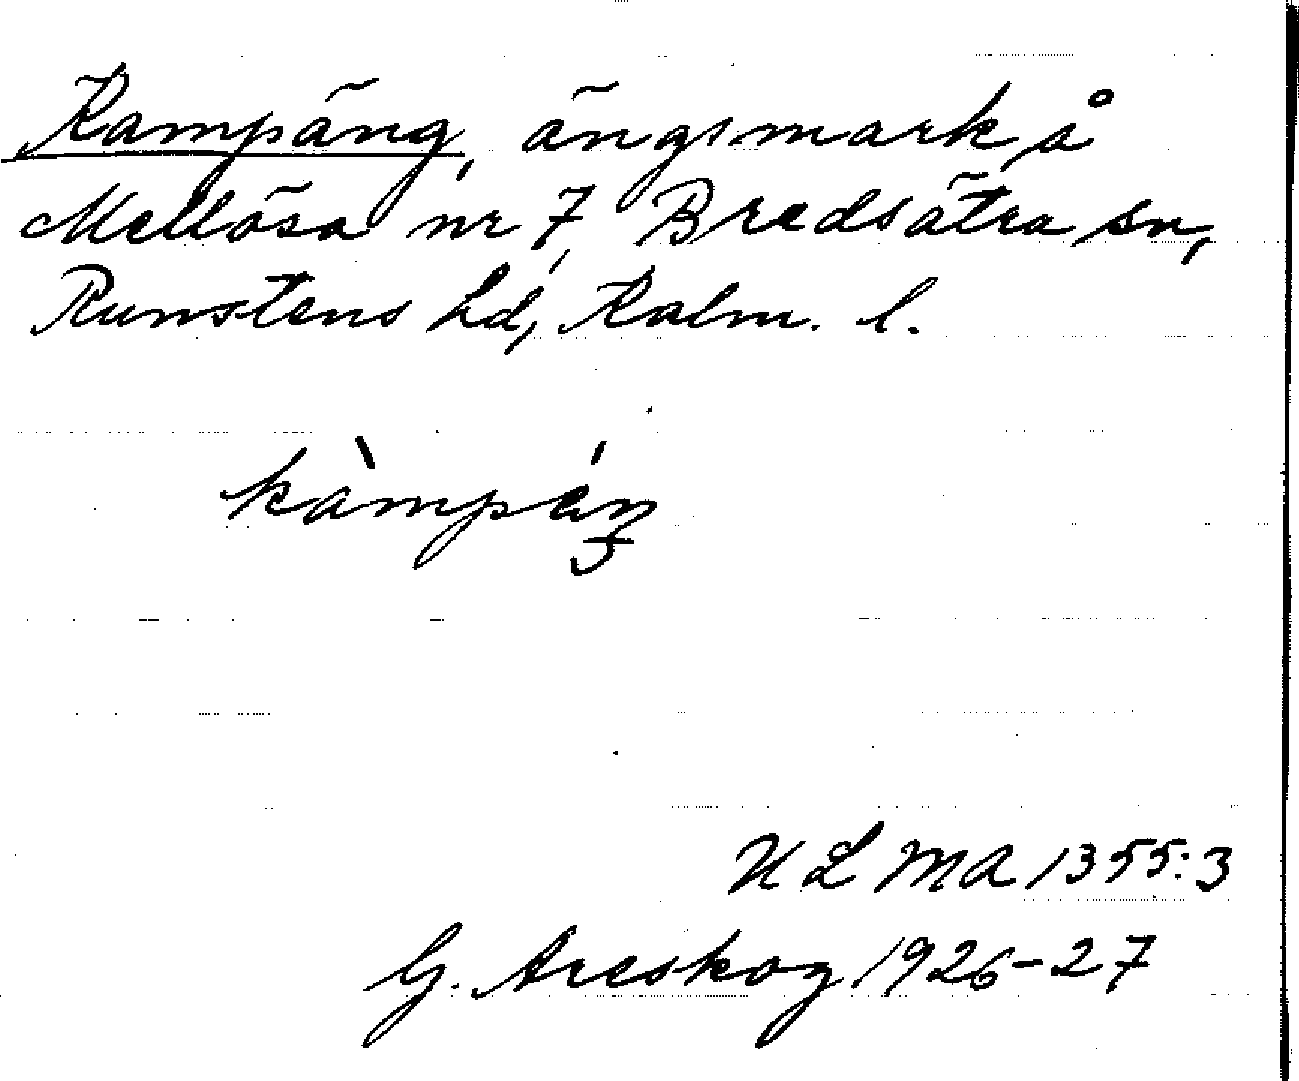 Kampäng, ängsmark å
Mellösa nr 7, Bredsätra sn,
Runstens hd, Kalm. l.
kàmpéŋ
ULMA 1355:3
G. Areskog 1926-27